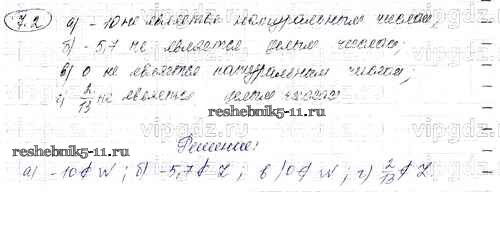 7.2 а) -10 не является натуральным числом;
б) -5,7 не является целым числом;
в) 0 не является натуральным числом;
г) 2/13 не является целым числом
vipgdz.
reshebnik5-11.ru
reshebnik5-11.ru
Решение:
а) -10 ∉ N ; б) -5,7 ∉ Z ; в) 0 ∉ N ; г) 2/13 ∉ Z.